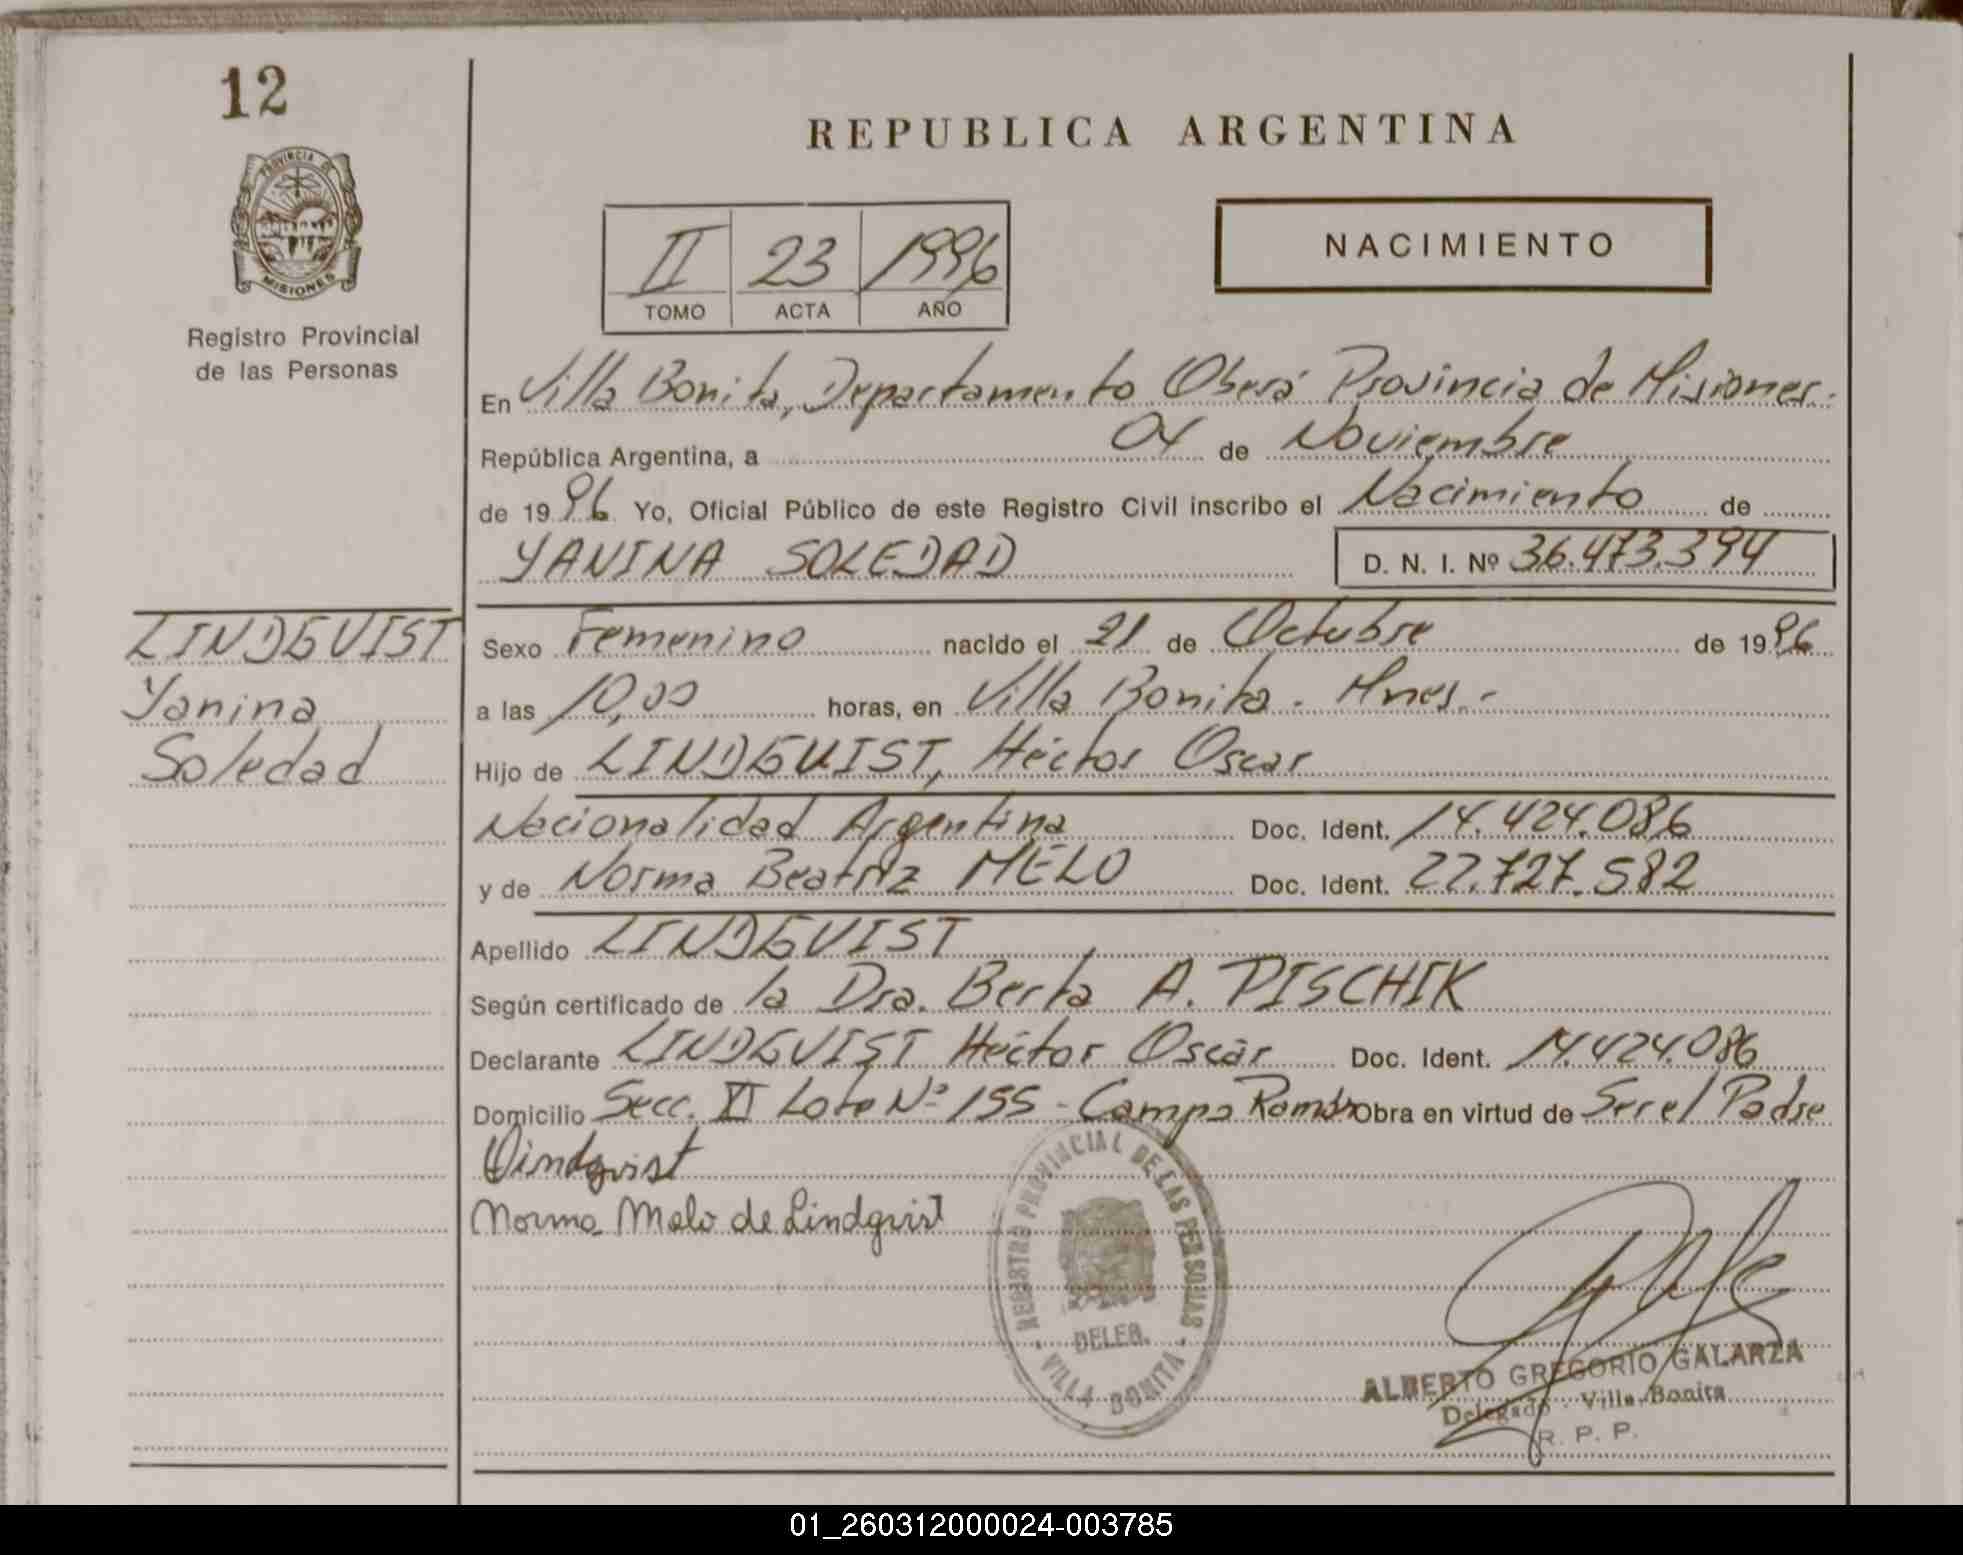 12
PROVINCIA DE
MISIONES
Registro Provincial
de las Personas
REPUBLICA ARGENTINA
II 23 1996
TOMO ACTA AÑO
NACIMIENTO
En Villa Bonita, Departamento Oberá Provincia de Misiones.
República Argentina, a 04 de Noviembre
de 1996 Yo, Oficial Público de este Registro Civil inscribo el Nacimiento de
YANINA SOLEDAD D. N. I. Nº 36.473.394
LINDGUIST
Yanina
Soledad
Sexo Femenino nacido el 21 de Octubre de 1996
a las 10,00 horas, en Villa Bonita - Mnes.-
Hijo de LINDGUIST, Héctor Oscar
Nacionalidad Argentina Doc. Ident. 14.424.086
y de Norma Beatriz MELO Doc. Ident. 22.727.582
Apellido LINDGUIST
Según certificado de la Dra. Berta A. PISCHIK
Declarante LINDGUIST Héctor Oscar Doc. Ident. 14.424.086
Domicilio Secc. VI Lote Nº 155 - Campo Ramón Obra en virtud de Ser el Padre
Lindqvist
Norma Melo de Lindqvist
REGISTRO PROVINCIAL DE LAS PERSONAS
DELEG.
- VILLA BONITA -
ALBERTO GREGORIO GALARZA
Delegado - Villa Bonita
R. P. P.
01_260312000024-003785